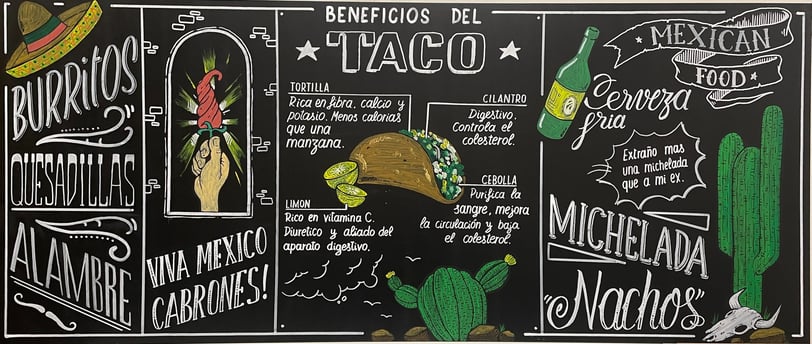 BURRITOS
QUESADILLAS
ALAMBRE
VIVA MEXICO
CABRONES!
BENEFICIOS DEL
TACO
TORTILLA
Rica en fibra, calcio y
potasio. Menos calorias
que una
manzana.
CILANTRO
Digestivo.
Controla el
colesterol.
LIMON
Rico en vitamina C.
Diuretico y aliado del
aparato digestivo.
CEBOLLA
Purifica la
sangre, mejora
la circulación y baja
el colesterol.
MEXICAN
FOOD
Cerveza
fria
Extraño mas
una michelada
que a mi ex.
MICHELADA
"Nachos"